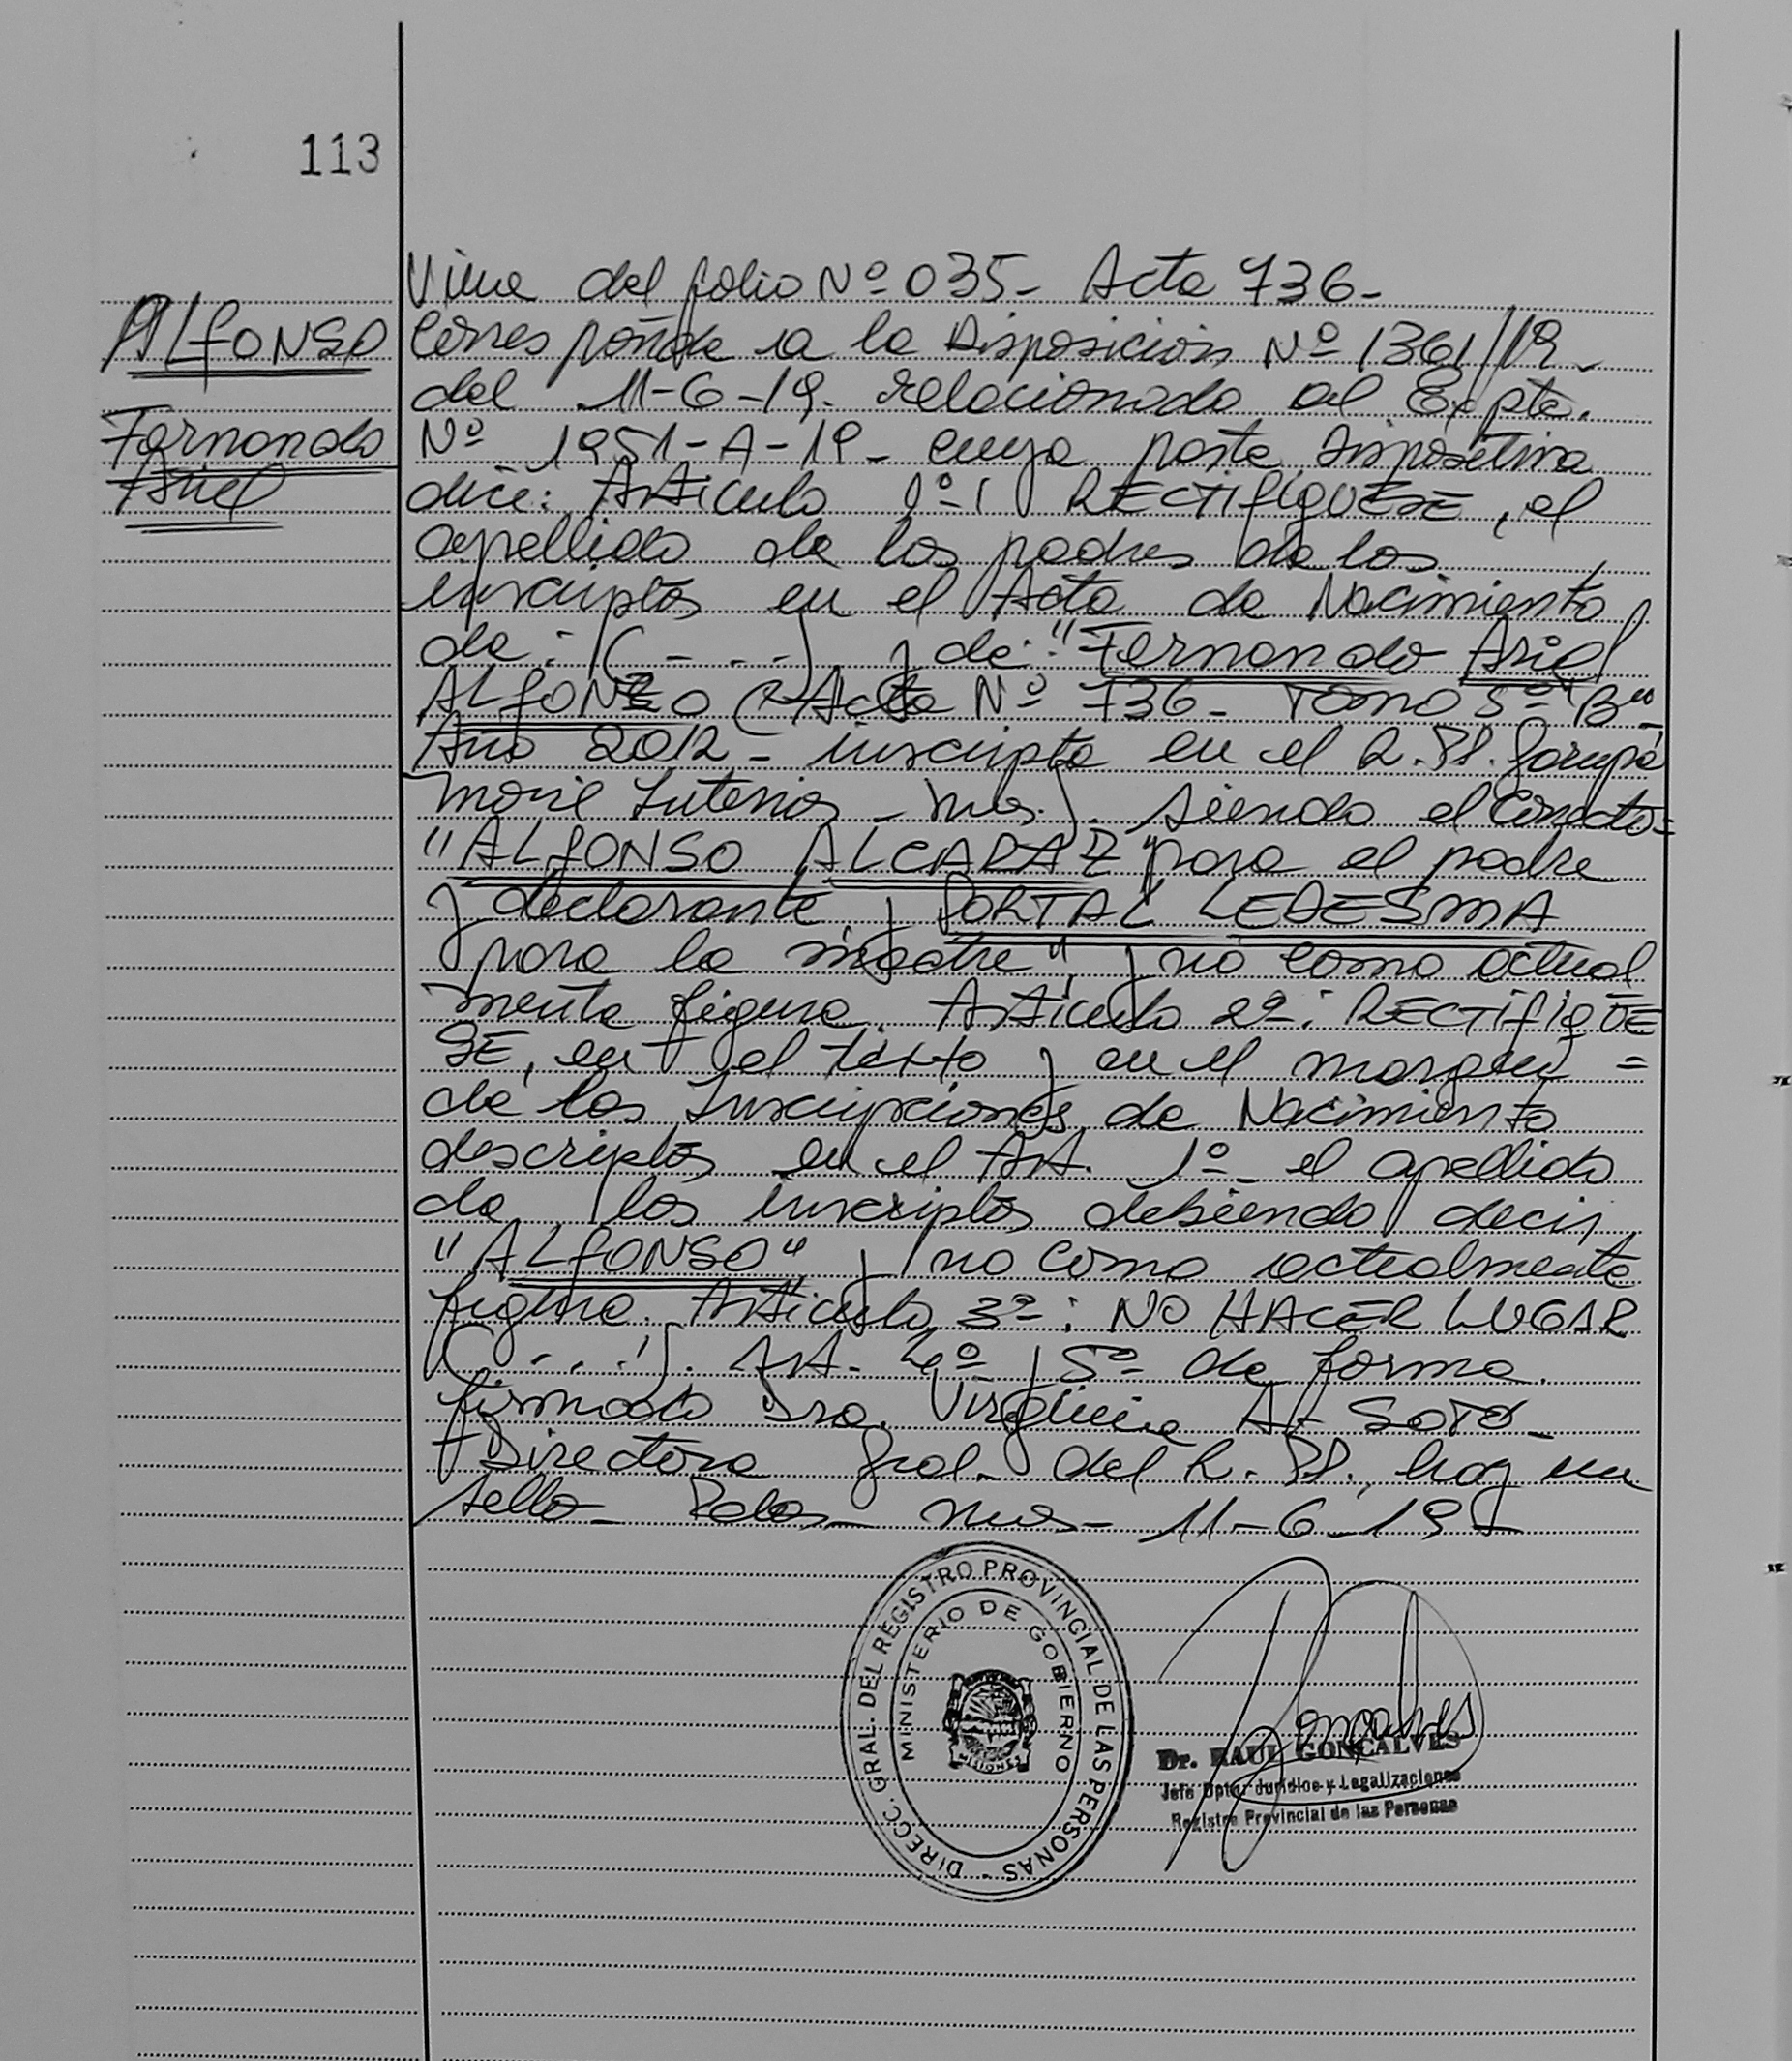 113
Viene del folio Nº 035- Acta 736-
ALFONSO
Fernando
Ariel
Corresponde a la Disposición Nº 1361/19-
del 11-6-19. relacionado al Expte.
Nº 1951-A-19- cuya parte dispositiva
dice: Artículo 1º: RECTIFIQUESE, el
apellido de los padres de los
inscriptos en el Acta de Nacimiento
de: (- . . -) y de: "Fernando Ariel
ALFONZO (Acta Nº 736- Tomo 5º "B"-
Año 2012- inscripta en el R.PP. Garupá
Movil Interior - Mnes.). siendo el correcto=
"ALFONSO ALCARAZ" para el padre
y declarante y PORTAL LEDESMA
para la madre", y no como actual
mente figura. Artículo 2º: RECTIFIQUE
SE, en el texto y en el margen =
de las Inscripciones de Nacimiento
descriptos en el Art. 1º- el apellido
de los inscriptos debiendo decir
"ALFONSO" y no como actualmente
figura. Artículo 3º: NO HACER LUGAR
(. . . .). Art. 4º y 5º de forma.
firmado Dra. Virginia A. SOTO-
Directora Gral. del R.PP. hay un
sello- Pdas- Mnes- 11-6-19-
DIRECC. GRAL. DEL REGISTRO PROVINCIAL DE LAS PERSONAS -
MINISTERIO DE GOBIERNO
MISIONES
Gonçalves
Dr. RAUL GONÇALVES
Jefe Dpto. Jurídico y Legalizaciones
Registro Provincial de las Personas